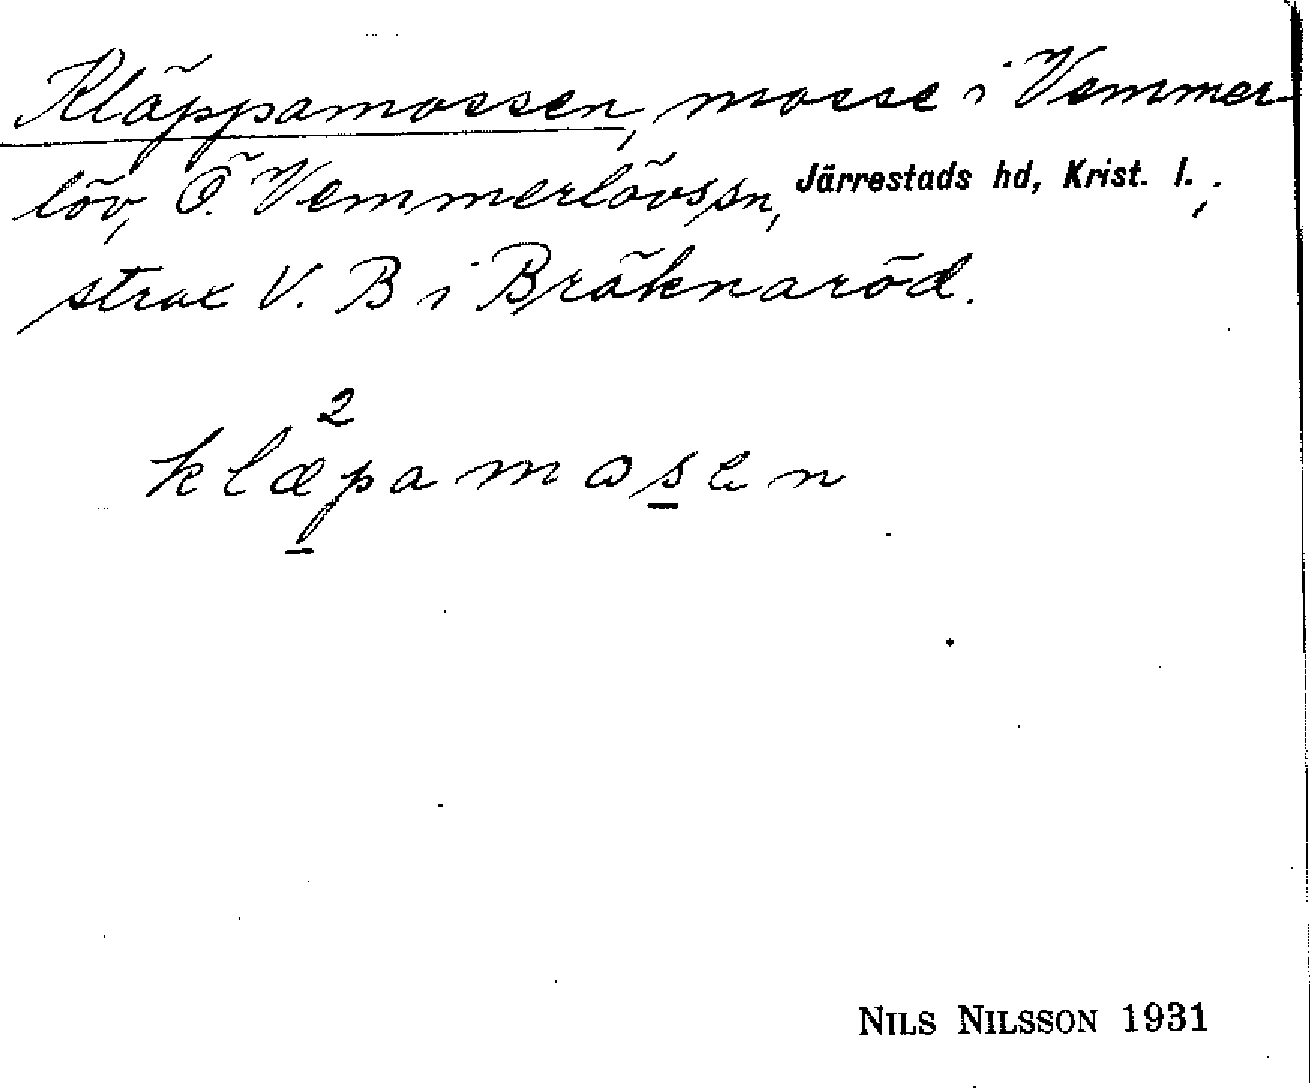 Kläppamossen, mosse i Vemmer-
löv, Ö. Vemmerlövs sn, Järrestads hd, Krist. l.;
strax V. B i Bräknaröd.
2
klæpamosen
NILS NILSSON 1931